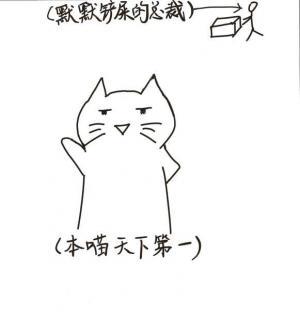 (默默铲屎的总裁)
(本喵天下第一)